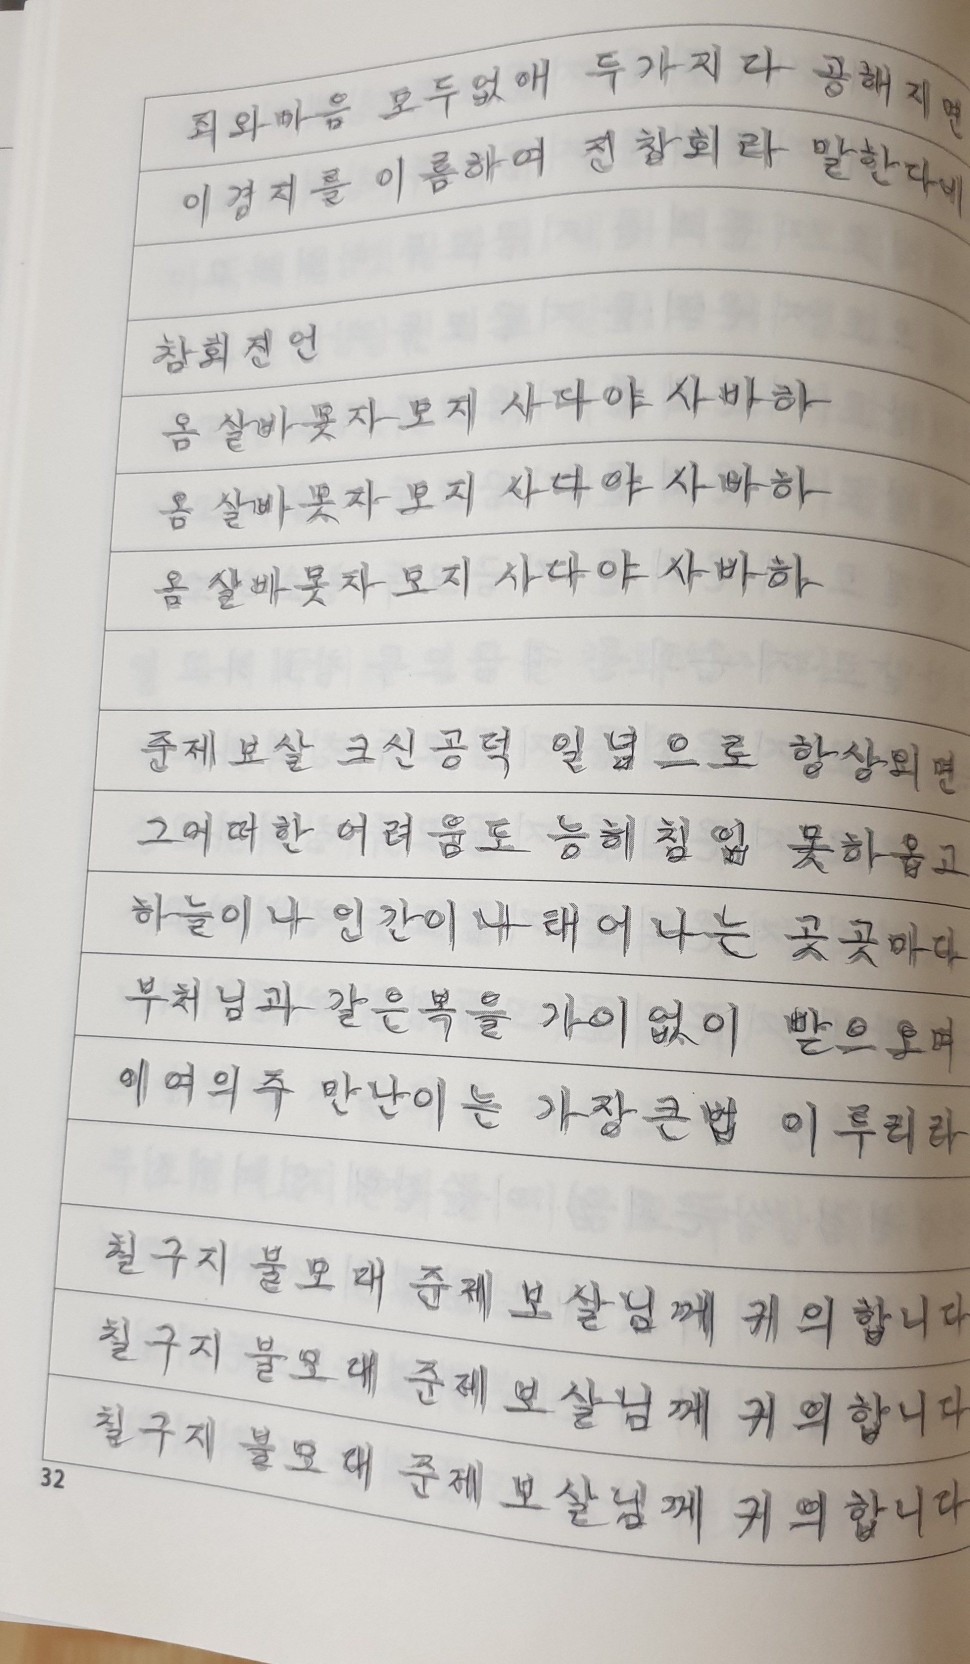 죄와마음 모두없애 두가지다 공해지면
이경지를 이름하여 진참회라 말한다네
참회진언
옴 살바못자모지 사다야 사바하
옴 살바못자모지 사다야 사바하
옴 살바못자모지 사다야 사바하
준제보살 크신공덕 일념으로 항상외면
그어떠한 어려움도 능히침입 못하옵고
하늘이나 인간이나 태어나는 곳곳마다
부처님과 같은복을 가이없이 받으오며
이여의주 만난이는 가장큰법 이루리라
칠구지 불모대 준제 보살님께 귀의합니다
칠구지 불모대 준제 보살님께 귀의합니다
칠구지 불모대 준제 보살님께 귀의합니다
32